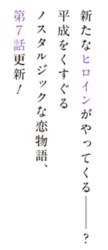 新たなヒロインがやってくる――?
平成をくすぐる
ノスタルジックな恋物語、
第7話更新!